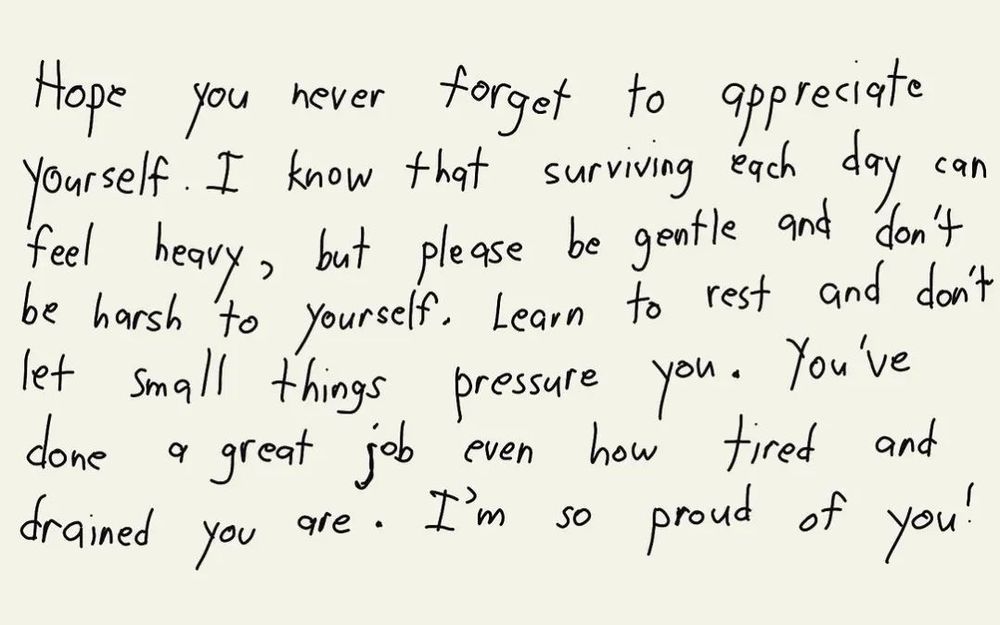 Hope you never forget to appreciate
yourself. I know that surviving each day can
feel heavy, but please be gentle and don't
be harsh to yourself. Learn to rest and don't
let small things pressure you. You've
done a great job even how tired and
drained you are. I'm so proud of you!